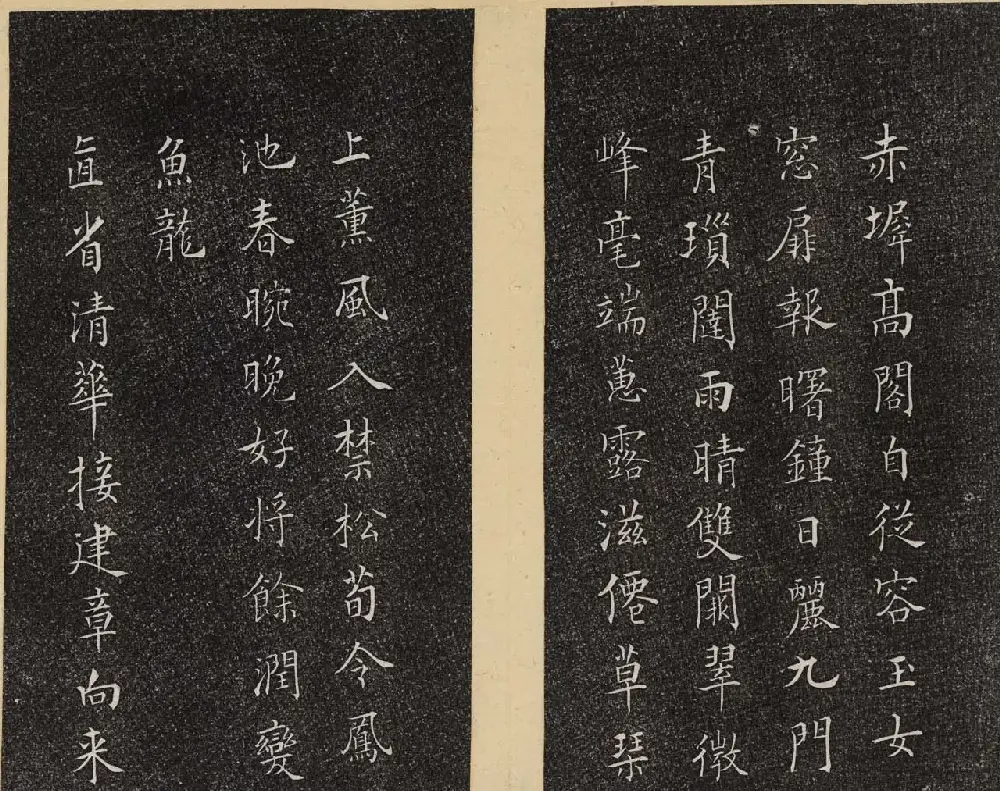 赤墀高閣自從容玉女
窓扉報曙鐘日麗九門
青瑣闥雨晴雙闕翠微
峰毫端蕙露滋僊草琹
上薰風入禁松荀令鳳
池春晼晚好將餘潤變
魚龍
直省清華接建章向来